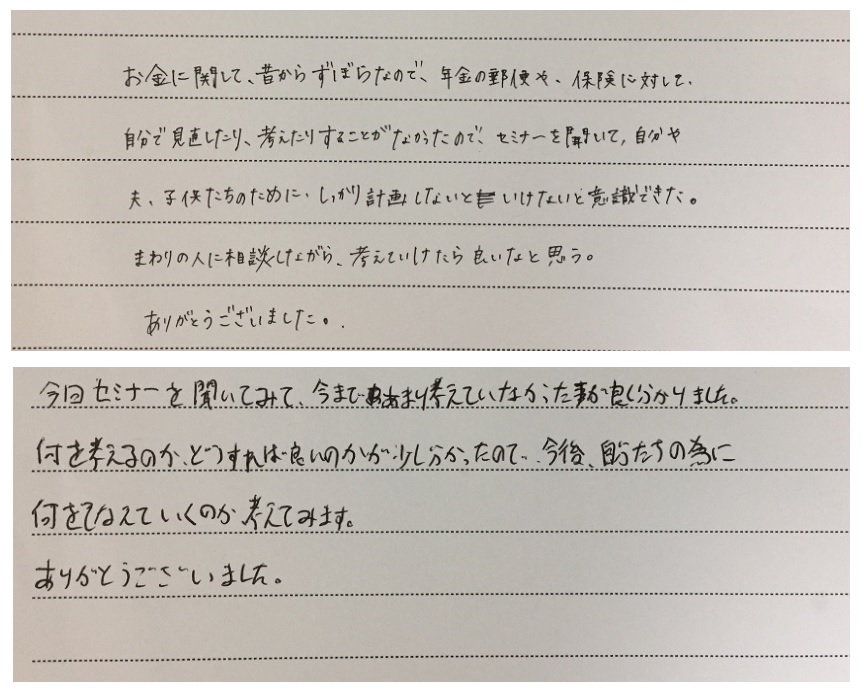 お金に関して、昔からずぼらなので、年金の郵便や、保険に対して、
自分で見直したり、考えたりすることがなかったので、セミナーを聞いて、自分や
夫、子供たちのために、しっかり計画しないといけないと意識できた。
まわりの人に相談しながら、考えていけたら良いなと思う。
ありがとうございました。
今回セミナーを聞いてみて、今まであまり考えていなかった事が良く分かりました。
何を考えるのか、どうすれば良いのかが少し分かったので、今後、自分たちの為に
何をそなえていくのか考えてみます。
ありがとうございました。